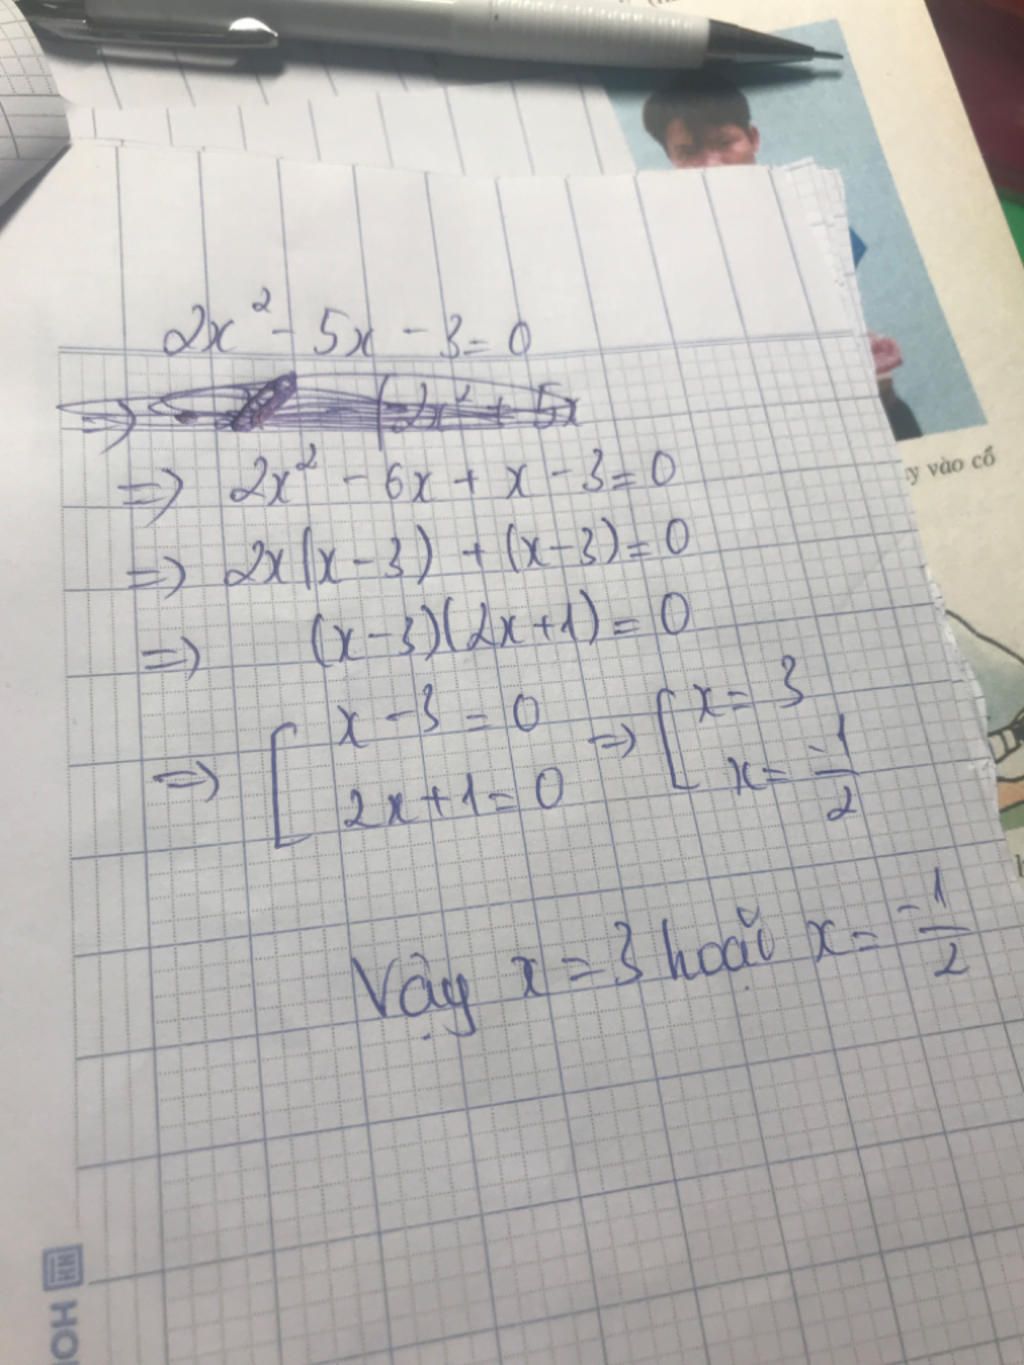 2x² - 5x - 3 = 0
=> (2x² + 5x
=> 2x² - 6x + x - 3 = 0
=> 2x(x - 3) + (x - 3) = 0
=> (x - 3)(2x + 1) = 0
=> [ x - 3 = 0 => [ x = 3
2x + 1 = 0 x = -1/2
Vậy x = 3 hoặc x = -1/2
vào cổ
HON